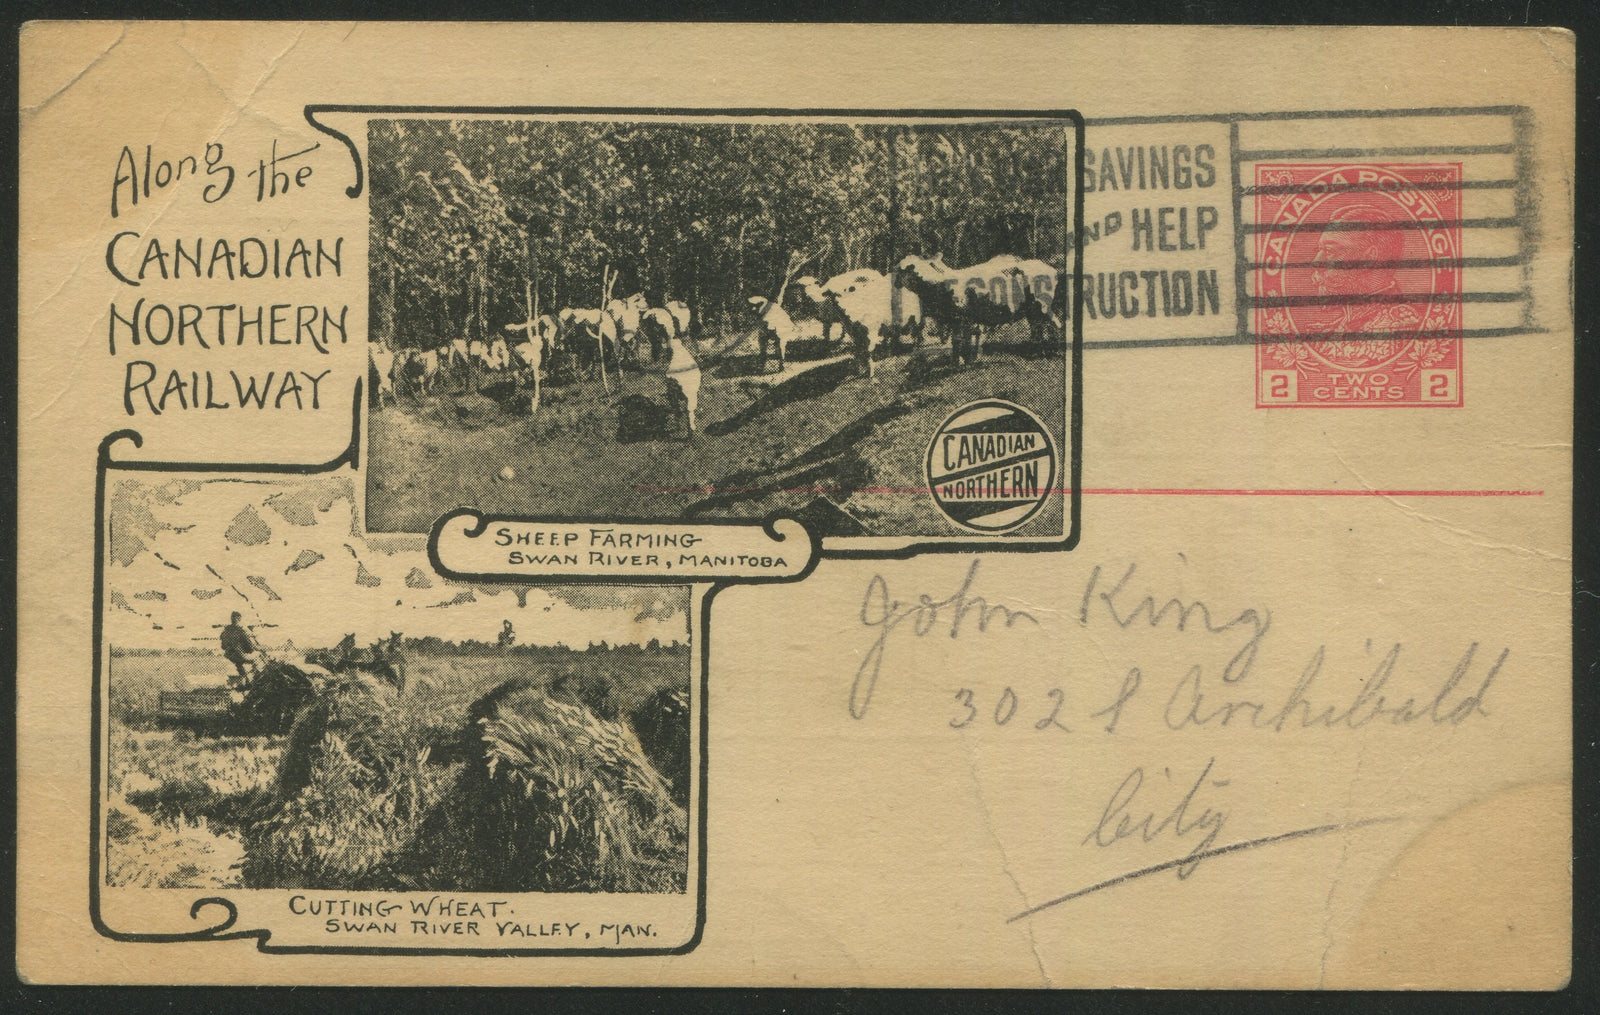 Along the
CANADIAN
NORTHERN
RAILWAY
SAVINGS
AND HELP
RECONSTRUCTION
CANADA POSTAGE
2 TWO CENTS 2
CANADIAN
NORTHERN
SHEEP FARMING
SWAN RIVER, MANITOBA
John King
302 S Archibald
City
CUTTING WHEAT.
SWAN RIVER VALLEY, MAN.